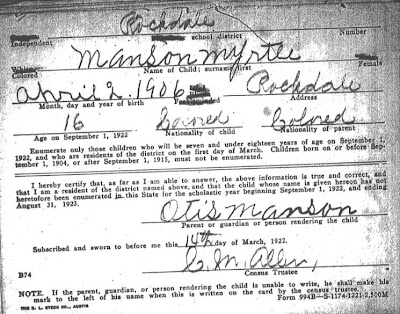 Rockdale
Independent school district Number
Manson Myrtle
Colored Name of Child; surname first Female
April 2, 1906 Rockdale
Month, day and year of birth Address
16 Colored Colored
Age on September 1, 1922 Nationality of child Nationality of parent
Enumerate only those children who will be seven and under eighteen years of age on September 1,
1922, and who are residents of the district on the first day of March. Children born on or before Sep-
tember 1, 1904, or after September 1, 1915, must not be enumerated.
I hereby certify that, as far as I am able to answer, the above information is true and correct, and
that I am a resident of the district named above, and that the child whose name is given hereon has not
heretofore been enumerated in this State for the scholastic year beginning September 1, 1922, and ending
August 31, 1923.
Otis Manson
Parent or guardian or person rendering the child
Subscribed and sworn to before me this 14th day of March, 1922.
C. M. Allen,
B74 Census Trustee
NOTE. If the parent, guardian, or person rendering the child is unable to write, he shall make his
mark to the left of his name when this is written on the card by the census trustee.
THE E. L. STECK CO., AUSTIN Form 994B—S-1174-1221-2,500M